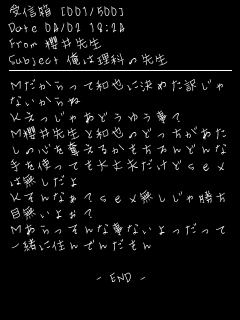 受信箱 [001/500]
Date 04/02 19:24
From 櫻井先生
Subject 俺は理科の先生
Mだからって和也に決めた訳じゃ
ないからね
Kえっじゃあどうゆう事?
M櫻井先生と和也のどっちがあた
しの心を奪えるかもちろんどんな
手を使っても大丈夫だけどsex
は無しだよ
Kそんなぁ?sex無しじゃ勝ち
目無いよぉ?
Mあらっそんな事ないよっだって
一緒に住んでんださん
- END -